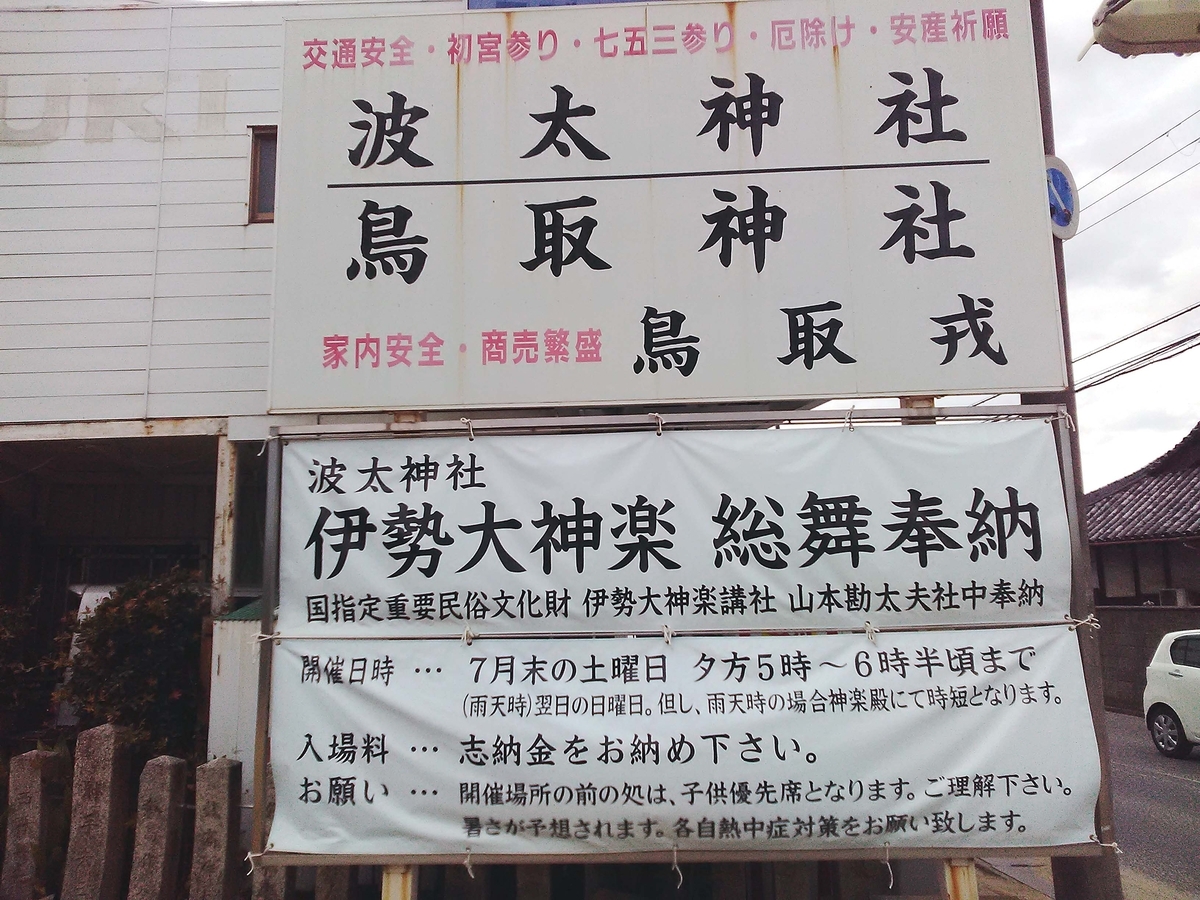 交通安全・初宮参り・七五三参り・厄除け・安産祈願
波太神社
鳥取神社
家内安全・商売繁盛 鳥取戎
波太神社
伊勢大神楽 総舞奉納
国指定重要民俗文化財 伊勢大神楽講社 山本勘太夫社中奉納
開催日時 … 7月末の土曜日 夕方5時～6時半頃まで
(雨天時)翌日の日曜日。但し、雨天時の場合神楽殿にて時短となります。
入場料 … 志納金をお納め下さい。
お願い … 開催場所の前の処は、子供優先席となります。ご理解下さい。
暑さが予想されます。各自熱中症対策をお願い致します。